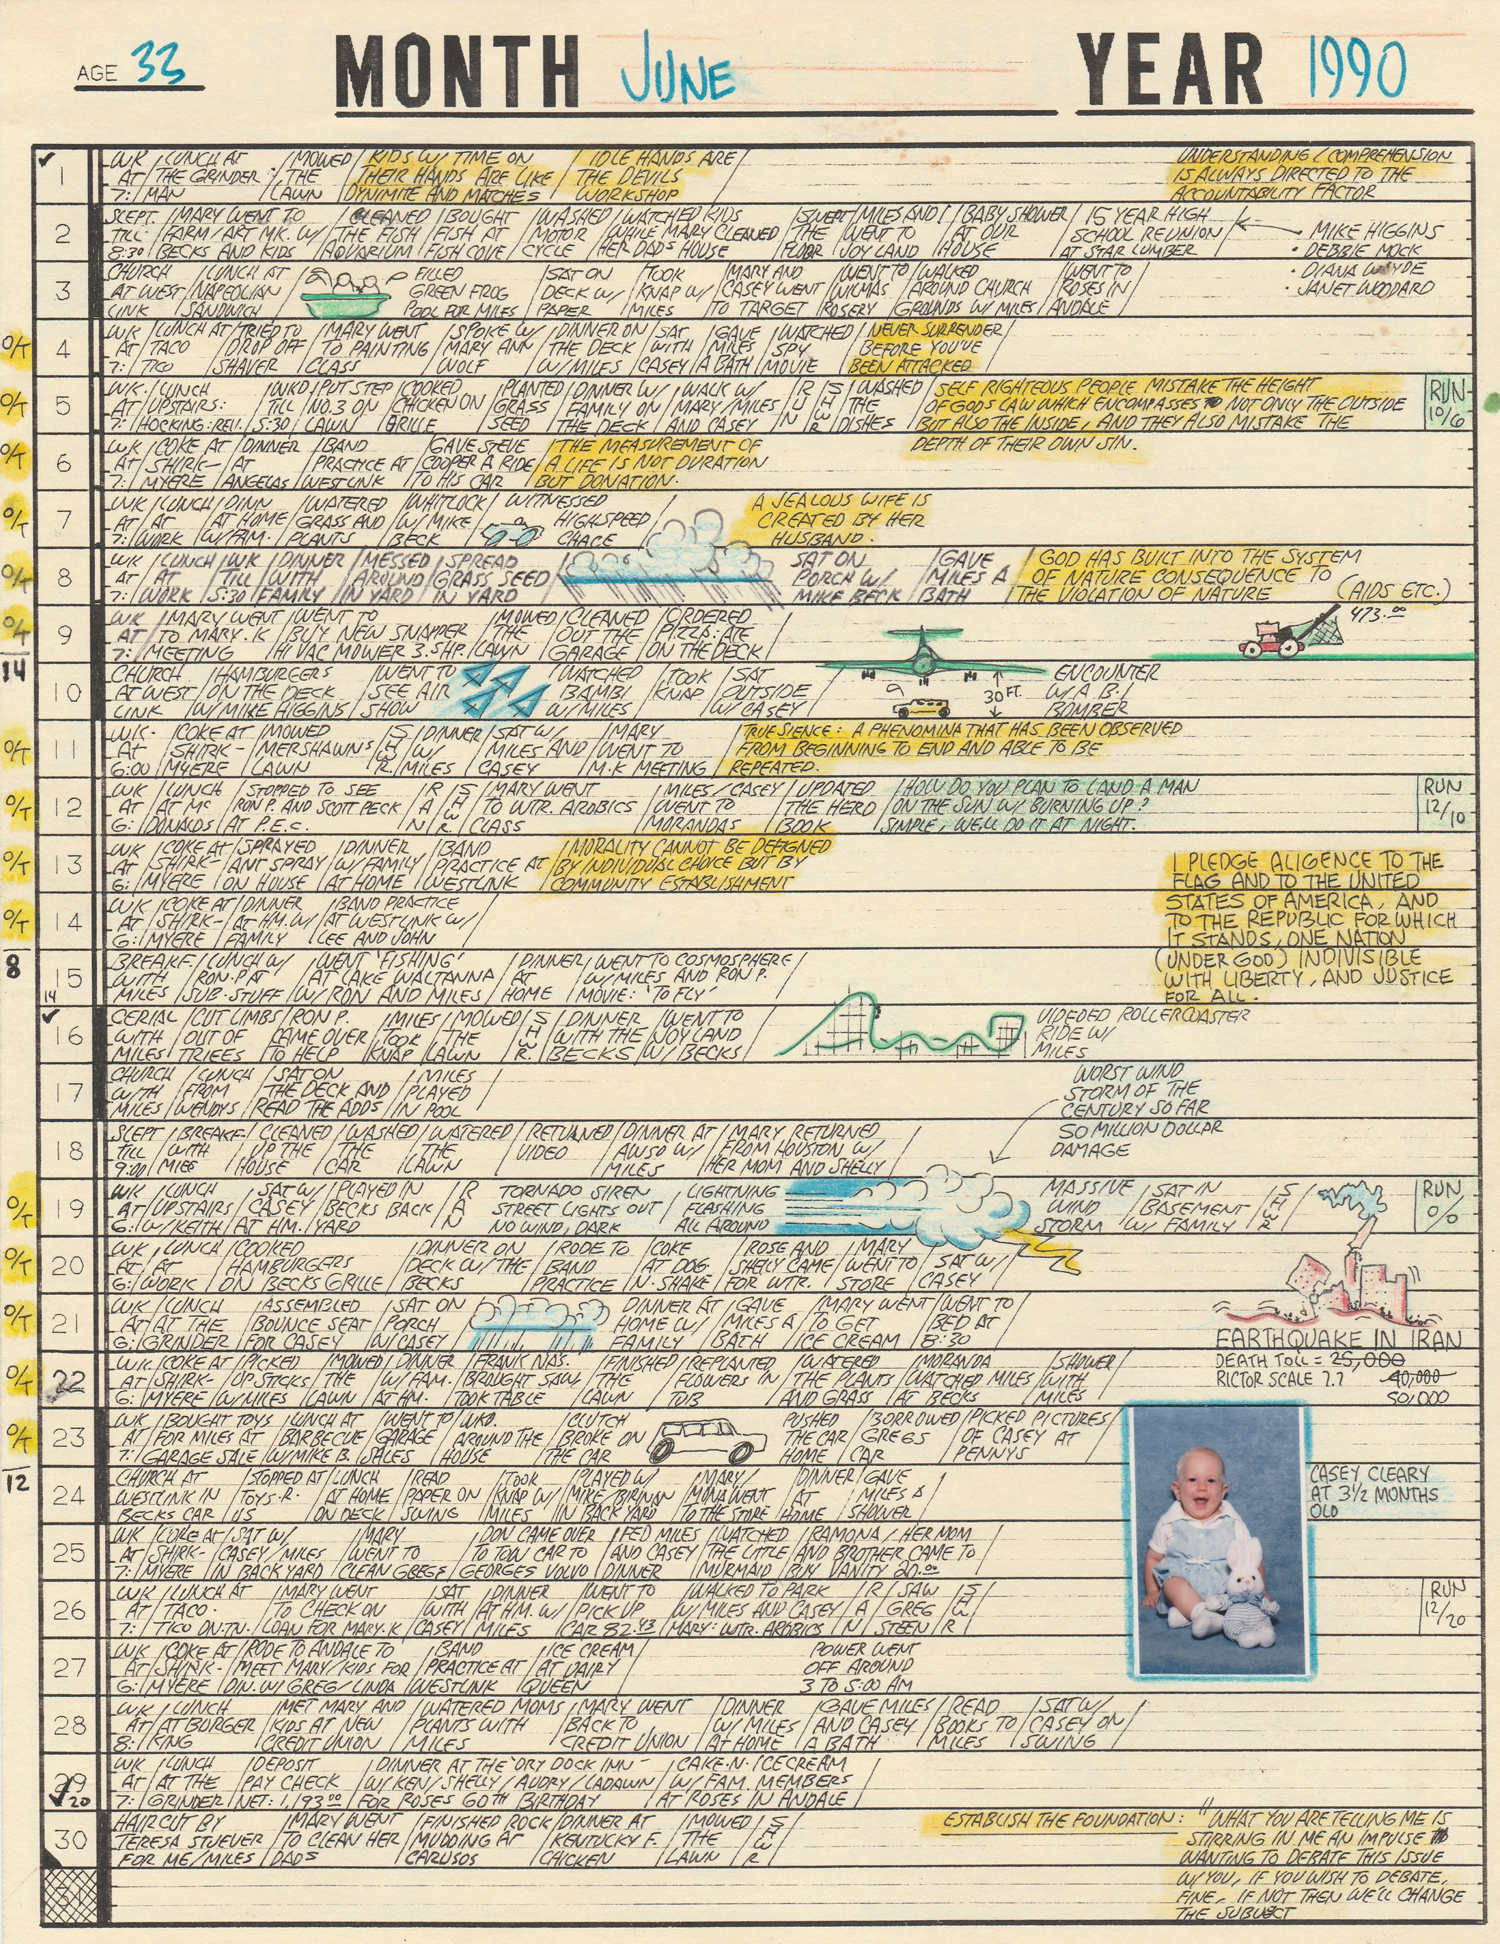 AGE 33
MONTH JUNE
YEAR 1990
1
WK
AT
7:
LUNCH AT
THE GRINDER
MAN
MOWED
THE
LAWN
KIDS W/ TIME ON
THEIR HANDS ARE LIKE
DYNIMITE AND MATCHES
IDLE HANDS ARE
THE DEVILS
WORKSHOP
UNDERSTANDING / COMPREHENSION
IS ALWAYS DIRECTED TO THE
ACCOUNTABILITY FACTOR
2
SLEPT
TILL
8:30
MARY WENT TO
FARM/ART MK. W/
BECKS AND KIDS
CLEANED
THE FISH
AQUARIUM
BOUGHT
FISH AT
FISH COVE
WASHED
MOTOR
CYCLE
WATCHED KIDS
WHILE MARY CLEANED
HER DADS HOUSE
SWEPT
THE
FLOOR
MILES AND I
WENT TO
JOY LAND
BABY SHOWER
AT OUR
HOUSE
15 YEAR HIGH
SCHOOL REUNION
AT STAR LUMBER
• MIKE HIGGINS
• DEBBIE MOCK
• DIANA WYDE
• JANET WOODARD
3
CHURCH
AT WEST
LINK
LUNCH AT
NAPEOLIAN
SANDWICH
FILLED
GREEN FROG
POOL FOR MILES
SAT ON
DECK W/
PAPER
TOOK
KNAP W/
MILES
MARY AND
CASEY WENT
TO TARGET
WENT TO
WILMAS
ROSERY
WALKED
AROUND CHURCH
GROUNDS W/ MILES
WENT TO
ROSES IN
ANDALE
O/T
4
WK
AT
7:
LUNCH AT
TACO
TICO
TRIED TO
DROP OFF
SHAVER
MARY WENT
TO PAINTING
CLASS
SPOKE W/
MARY ANN
WOLF
DINNER ON
THE DECK
W/ MILES
SAT
WITH
CASEY
GAVE
MILES
A BATH
WATCHED
SPY
MOVIE
NEVER SURRENDER
BEFORE YOU'VE
BEEN ATTACKED
O/T
5
WK.
AT
7:
LUNCH
UPSTAIRS:
HOCKING: REU.
WKD
TILL
5:30
PUT STEP
NO.3 ON
LAWN
COOKED
CHICKEN ON
GRILLE
PLANTED
GRASS
SEED
DINNER W/
FAMILY ON
THE DECK
WALK W/
MARY/MILES
AND CASEY
RUN
SHWR
WASHED
THE
DISHES
SELF RIGHTEOUS PEOPLE MISTAKE THE HEIGHT
OF GODS LAW WHICH ENCOMPASSES NOT ONLY THE OUTSIDE
BUT ALSO THE INSIDE, AND THEY ALSO MISTAKE THE
DEPTH OF THEIR OWN SIN.
RUN
10/6
O/T
6
WK
AT
7:
COKE AT
SHIRK-
MYERE
DINNER
AT
ANGELAS
BAND
PRACTICE AT
WESTLINK
GAVE STEVE
COOPER A RIDE
TO HIS CAR
THE MEASUREMENT OF
A LIFE IS NOT DURATION
BUT DONATION.
O/T
7
WK
AT
7:
LUNCH
AT
WORK
DINN
AT HOME
W/FAM.
WATERED
GRASS AND
PLANTS
WHITLOCK
W/ MIKE
BECK
WITNESSED
HIGHSPEED
CHACE
A JEALOUS WIFE IS
CREATED BY HER
HUSBAND.
O/T
8
WK
AT
7:
LUNCH
AT
WORK
WK
TILL
5:30
DINNER
WITH
FAMILY
MESSED
AROUND
IN YARD
SPREAD
GRASS SEED
IN YARD
SAT ON
PORCH W/
MIKE BECK
GAVE
MILES A
BATH
GOD HAS BUILT INTO THE SYSTEM
OF NATURE CONSEQUENCE TO
THE VIOLATION OF NATURE
(AIDS ETC.)
O/T
14
9
WK
AT
7:
MARY WENT
TO MARY.K
MEETING
WENT TO
BUY NEW SNAPPER
HI VAC MOWER 3.5HP.
MOWED
THE
LAWN
CLEANED
OUT THE
GARAGE
ORDERED
PIZZA: ATE
ON THE DECK
473.00
10
CHURCH
AT WEST
LINK
HAMBURGERS
ON THE DECK
W/ MIKE HIGGINS
WENT TO
SEE AIR
SHOW
WATCHED
BAMBI
W/ MILES
TOOK
KNAP
SAT
OUTSIDE
W/ CASEY
30 FT.
ENCOUNTER
W/ A B.1
BOMBER
O/T
11
WK.
AT
6:00
COKE AT
SHIRK-
MYERE
MOWED
MERSHAWNS
LAWN
SHWR
DINNER
W/
MILES
SAT W/
MILES AND
CASEY
MARY
WENT TO
M.K MEETING
TRUE SIENCE: A PHENOMINA THAT HAS BEEN OBSERVED
FROM BEGINNING TO END AND ABLE TO BE
REPEATED.
O/T
12
WK
AT
6:
LUNCH
AT MC
DONALDS
STOPPED TO SEE
RON P. AND SCOTT PECK
AT P.E.C.
RAN
SHWR
MARY WENT
TO WTR. AROBICS
CLASS
MILES/CASEY
WENT TO
MORANDAS
UPDATED
THE HERD
BOOK
HOW DO YOU PLAN TO LAND A MAN
ON THE SUN W/ BURNING UP?
SIMPLE, WE'LL DO IT AT NIGHT.
RUN
12/10
O/T
13
WK
AT
6:
COKE AT
SHIRK-
MYERE
SPRAYED
ANT SPRAY
ON HOUSE
DINNER
W/ FAMILY
AT HOME
BAND
PRACTICE AT
WESTLINK
MORALITY CANNOT BE DEFIGNED
BY INDIVIDUAL CHOICE BUT BY
COMMUNITY ESTABLISHMENT
I PLEDGE ALIGENCE TO THE
FLAG AND TO THE UNITED
STATES OF AMERICA, AND
TO THE REPUBLIC FOR WHICH
IT STANDS, ONE NATION
(UNDER GOD) INDIVISIBLE
WITH LIBERTY, AND JUSTICE
FOR ALL.
O/T
8
14
WK
AT
6:
COKE AT
SHIRK-
MYERE
DINNER
AT HM. W/
FAMILY
BAND PRACTICE
AT WESTLINK W/
LEE AND JOHN
15
14
BREAKF.
WITH
MILES
LUNCH W/
RON.P AT
SUB.STUFF
WENT 'FISHING'
AT LAKE WALTANNA
W/ RON AND MILES
DINNER
AT
HOME
WENT TO COSMOSPHERE
W/ MILES AND RON P.
MOVIE: 'TO FLY'
16
CERIAL
WITH
MILES
CUT LIMBS
OUT OF
TREES
RON P.
CAME OVER
TO HELP
MILES
TOOK
KNAP
MOWED
THE
LAWN
SHWR.
DINNER
WITH THE
BECKS
WENT TO
JOYLAND
W/ BECKS
VIDEOED ROLLERCOASTER
RIDE W/
MILES
17
CHURCH
WITH
MILES
LUNCH
FROM
WENDYS
SAT ON
THE DECK AND
READ THE ADDS
MILES
PLAYED
IN POOL
WORST WIND
STORM OF THE
CENTURY SO FAR
50 MILLION DOLLAR
DAMAGE
18
SLEPT
TILL
9:00
BREAKF.
WITH
MILES
CLEANED
UP THE
HOUSE
WASHED
THE
CAR
WATERED
THE
LAWN
RETURNED
VIDEO
DINNER AT
AWSO W/
MILES
MARY RETURNED
FROM HOUSTON W/
HER MOM AND SHELLY
O/T
19
WK
AT
6:
LUNCH
UPSTAIRS
W/ KEITH
SAT W/
CASEY
AT HM.
PLAYED IN
BECKS BACK
YARD
RAN
TORNADO SIREN
STREET LIGHTS OUT
NO WIND, DARK
LIGHTNING
FLASHING
ALL AROUND
MASSIVE
WIND
STORM
SAT IN
BASEMENT
W/ FAMILY
SHWR
RUN
0/0
O/T
20
WK
AT
6:
LUNCH
AT
WORK
COOKED
HAMBURGERS
ON BECKS GRILLE
DINNER ON
DECK W/ THE
BECKS
RODE TO
BAND
PRACTICE
COKE
AT DOG
N. SHAKE
ROSE AND
SHELY CAME
FOR WTR.
MARY
WENT TO
STORE
SAT W/
CASEY
O/T
21
WK
AT
6:
LUNCH
AT THE
GRINDER
ASSEMBLED
BOUNCE SEAT
FOR CASEY
SAT ON
PORCH
W/ CASEY
DINNER AT
HOME W/
FAMILY
GAVE
MILES A
BATH
MARY WENT
TO GET
ICE CREAM
WENT TO
BED AT
8:30
EARTHQUAKE IN IRAN
DEATH TOLL = 25,000
RICTOR SCALE 7.7 40,000
50,000
O/T
22
WK.
AT
6:
COKE AT
SHIRK-
MYERE
PICKED
UP STICKS
W/ MILES
MOWED
THE
LAWN
DINNER
W/ FAM.
AT HM.
FRANK NAS.
BROUGHT SAW,
TOOK TABLE
FINISHED
THE
LAWN
REPLANTED
FLOWERS IN
TUB
WATERED
THE PLANTS
AND GRASS
MORANDA
WATCHED MILES
AT BECKS
SHOWER
WITH
MILES
O/T
12
23
WK
AT
7:
BOUGHT TOYS
FOR MILES AT
GARAGE SALE
LUNCH AT
BARBECUE
W/ MIKE B.
WENT TO
GARAGE
SALES
WKD.
AROUND THE
HOUSE
CLUTCH
BROKE ON
THE CAR
PUSHED
THE CAR
HOME
BORROWED
GREGS
CAR
PICKED PICTURES
OF CASEY AT
PENNYS
24
CHURCH AT
WESTLINK IN
BECKS CAR
STOPPED AT
TOYS.R.
US
LUNCH
AT HOME
ON DECK
READ
PAPER ON
SWING
TOOK
KNAP W/
MILES
PLAYED W/
MIKE/BRINAN
IN BACK YARD
MARY/
MONA WENT
TO THE STORE
DINNER
AT
HOME
GAVE
MILES A
SHOWER
CASEY, CLEARY
AT 3½ MONTHS
OLD
25
WK
AT
7:
COKE AT
SHIRK-
MYERE
SAT W/
CASEY/MILES
IN BACK YARD
MARY
WENT TO
CLEAN GREGS
DON CAME OVER
TO TOW CAR TO
GEORGES VOLVO
FED MILES
AND CASEY
DINNER
WATCHED
THE LITTLE
MURMAID
RAMONA/HER MOM
AND BROTHER CAME TO
BUY VANITY 20.00
26
WK
AT
7:
LUNCH AT
TACO.
TICO ON.TN.
MARY WENT
TO CHECK ON
LOAN FOR MARY.K
SAT
WITH
CASEY
DINNER
AT HM. W/
MILES
WENT TO
PICK UP
CAR 82.43
WALKED TO PARK
W/ MILES AND CASEY
MARY: WTR. AROBICS
RAN
SAW
GREG
STEEN
SHWR
RUN
12/20
27
WK
AT
6:
COKE AT
SHIRK-
MYERE
RODE TO ANDALE TO
MEET MARY/KIDS FOR
DIN. W/ GREG/LINDA
BAND
PRACTICE AT
WESTLINK
ICE CREAM
AT DAIRY
QUEEN
POWER WENT
OFF AROUND
3 TO 5:00 AM
28
WK
AT
8:
LUNCH
AT BURGER
KING
MET MARY AND
KIDS AT NEW
CREDIT UNION
WATERED MOMS
PLANTS WITH
MILES
MARY WENT
BACK TO
CREDIT UNION
DINNER
W/ MILES
AT HOME
GAVE MILES
AND CASEY
A BATH
READ
BOOKS TO
MILES
SAT W/
CASEY ON
SWING
29
20
WK
AT
7:
LUNCH
AT THE
GRINDER
DEPOSIT
PAY CHECK
NET: 1,193.00
DINNER AT THE 'DRY DOCK INN'
W/ KEN/SHELLY/AUDRY/LADAWN
FOR ROSES 60TH BIRTHDAY
CAKE.N.ICECREAM
W/ FAM. MEMBERS
AT ROSES IN ANDALE
30
HAIRCUT BY
TERESA STUEVER
FOR ME/MILES
MARY WENT
TO CLEAN HER
DADS
FINISHED ROCK
MUDDING AT
CARUSOS
DINNER AT
KENTUCKY F.
CHICKEN
MOWED
THE
LAWN
SHWR
ESTABLISH THE FOUNDATION: "WHAT YOU ARE TELLING ME IS
STIRRING IN ME AN IMPULSE
WANTING TO DEBATE THIS ISSUE
W/ YOU, IF YOU WISH TO DEBATE,
FINE, IF NOT THEN WE'LL CHANGE
THE SUBJECT
31